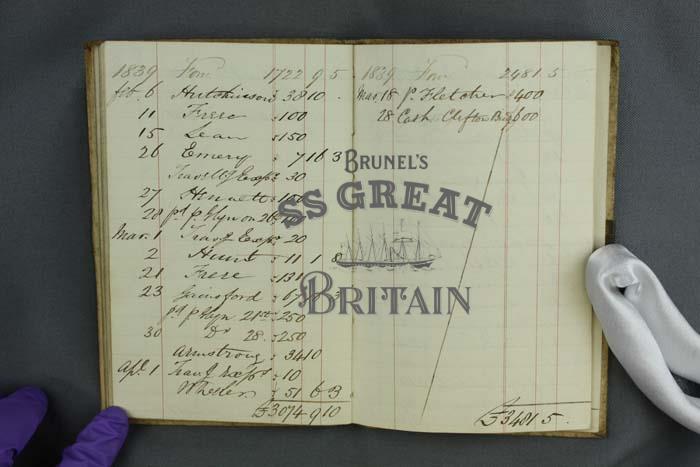 1839 Forw 1722 9 5
feb. 6 Hutchinson 38 10 .
11 Frere 100
15 Lean 150
26 Emery 7 16 3
30
27 Hennet 100
28
Mar. 1 20
2 Hunt 11 1 8
21 Frere 131
23 Gainsford
21st 250
30 Do 28. 250
Armstrong 34 10
Apl. 1 10
Wheeler 51 6 3
£3074 9 10
1839 Forw 2481 5
Mar. 18 Fletcher 400
28 Cash Clifton Bdg 600
£3481 5 .
BRUNEL'S
SS GREAT
BRITAIN